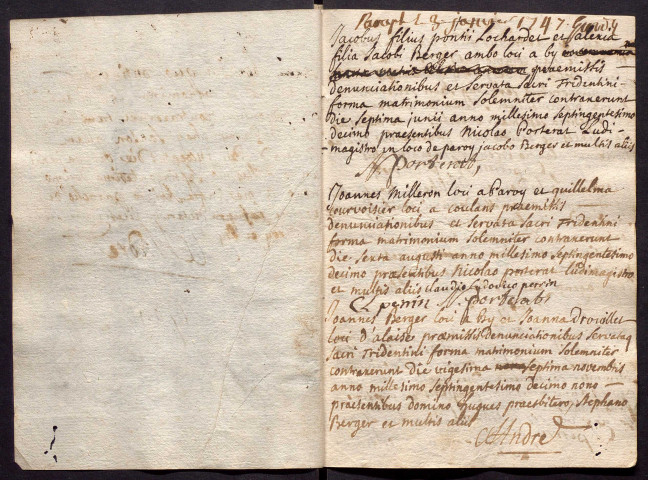 Parapt 13 janvier 1747
Jacobus filius pontii Lochardet et
filia Jacobi Berger ambo loci a by
praemissis
denunciationibus et servata sacri Tridentini
forma matrimonium Solemniter contraxerunt
die septima junii anno millesimo septingentesimo
decimo praesentibus Nicolao Porterat Ludi-
magistro in loco de paroy jacobo Berger et multis aliis
N porterat
Joannes Milleron loci a Paroy et guillelma
courvoisier loci a coulans praemissis
denunciationibus et servata Sacri Tridentini
forma matrimonium Solemniter contraxerunt
die sexta augusti anno millesimo septingentesimo
decimo praesentibus Nicolao porterat ludimagistro
et multis aliis claudio Ludovico perrin
Cl perrin N. porterat
Joannes Berger loci a By et Joanna Drouillet
loci d'alaise praemissis denunciationibus servataq
sacri Tridentini forma matrimonium solemniter
contraxerunt die vigesima septima novembris
anno millesimo septingentesimo decimo nono
praesentibus domino hugues praesbitero, Stephano
Berger et multis aliis
Andre